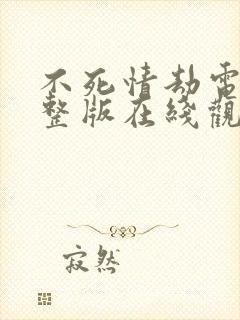 不死情劫電
整版在綫觀
寂然